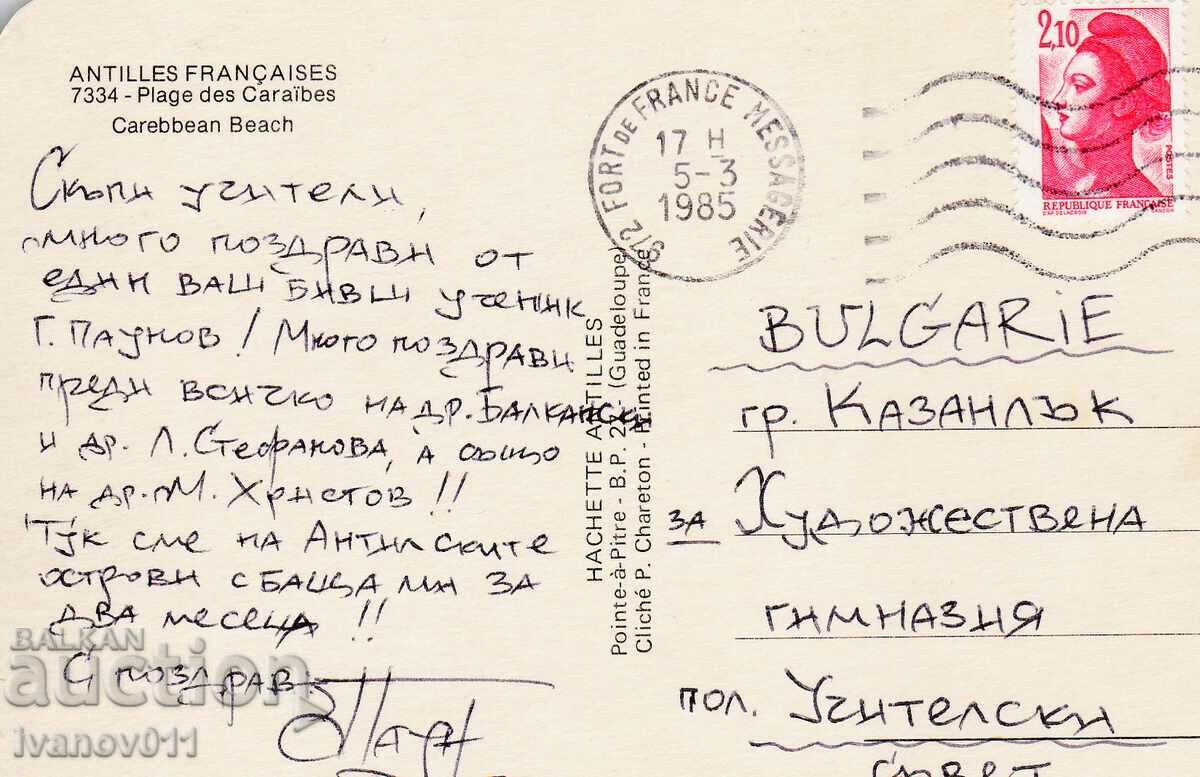 ANTILLES FRANÇAISES
7334 - Plage des Caraïbes
Carebbean Beach
Скъпи учители,
много поздрави от
един ваш бивш ученик
Г. Паунов! Много поздрави
преди всичко на др. Балкански
и др. Л. Стефанова, а също
на др. М. Христов!!
Тук сме на Антилските
острови с баща ми за
два месеца!!
С поздрав:
972 FORT DE FRANCE MESSAGERIE
17 H
5-3
1985
2,10
POSTES
REPUBLIQUE FRANÇAISE
D'AP. DELACROIX GANDON
HACHETTE ANTILLES
Pointe-à-Pitre - B.P. (Guadeloupe)
Cliché P. Chareton - Printed in France
BULGARIE
гр. Казанлък
за Художествена
гимназия
пол. Учителски
съвет
BALKAN
auction
ivanov011